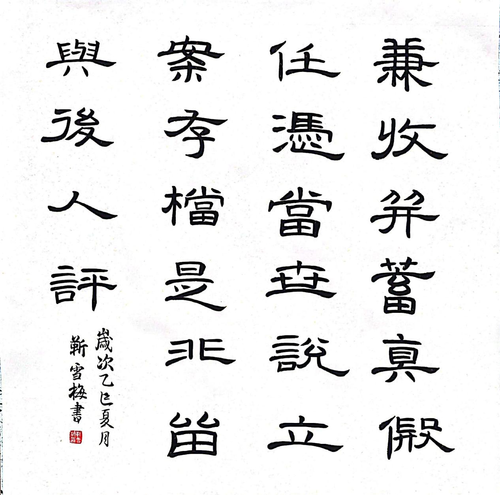 兼收并蓄真假
任憑當世說立
案存檔是非留
與後人評
歲次乙巳夏月
靳雪梅書